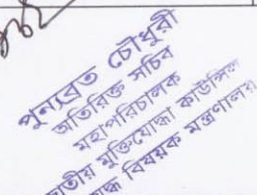 পুন্যব্রত চৌধুরী
অতিরিক্ত সচিব
মহাপরিচালক
জাতীয় মুক্তিযোদ্ধা কাউন্সিল
বিষয়ক মন্ত্রণালয়